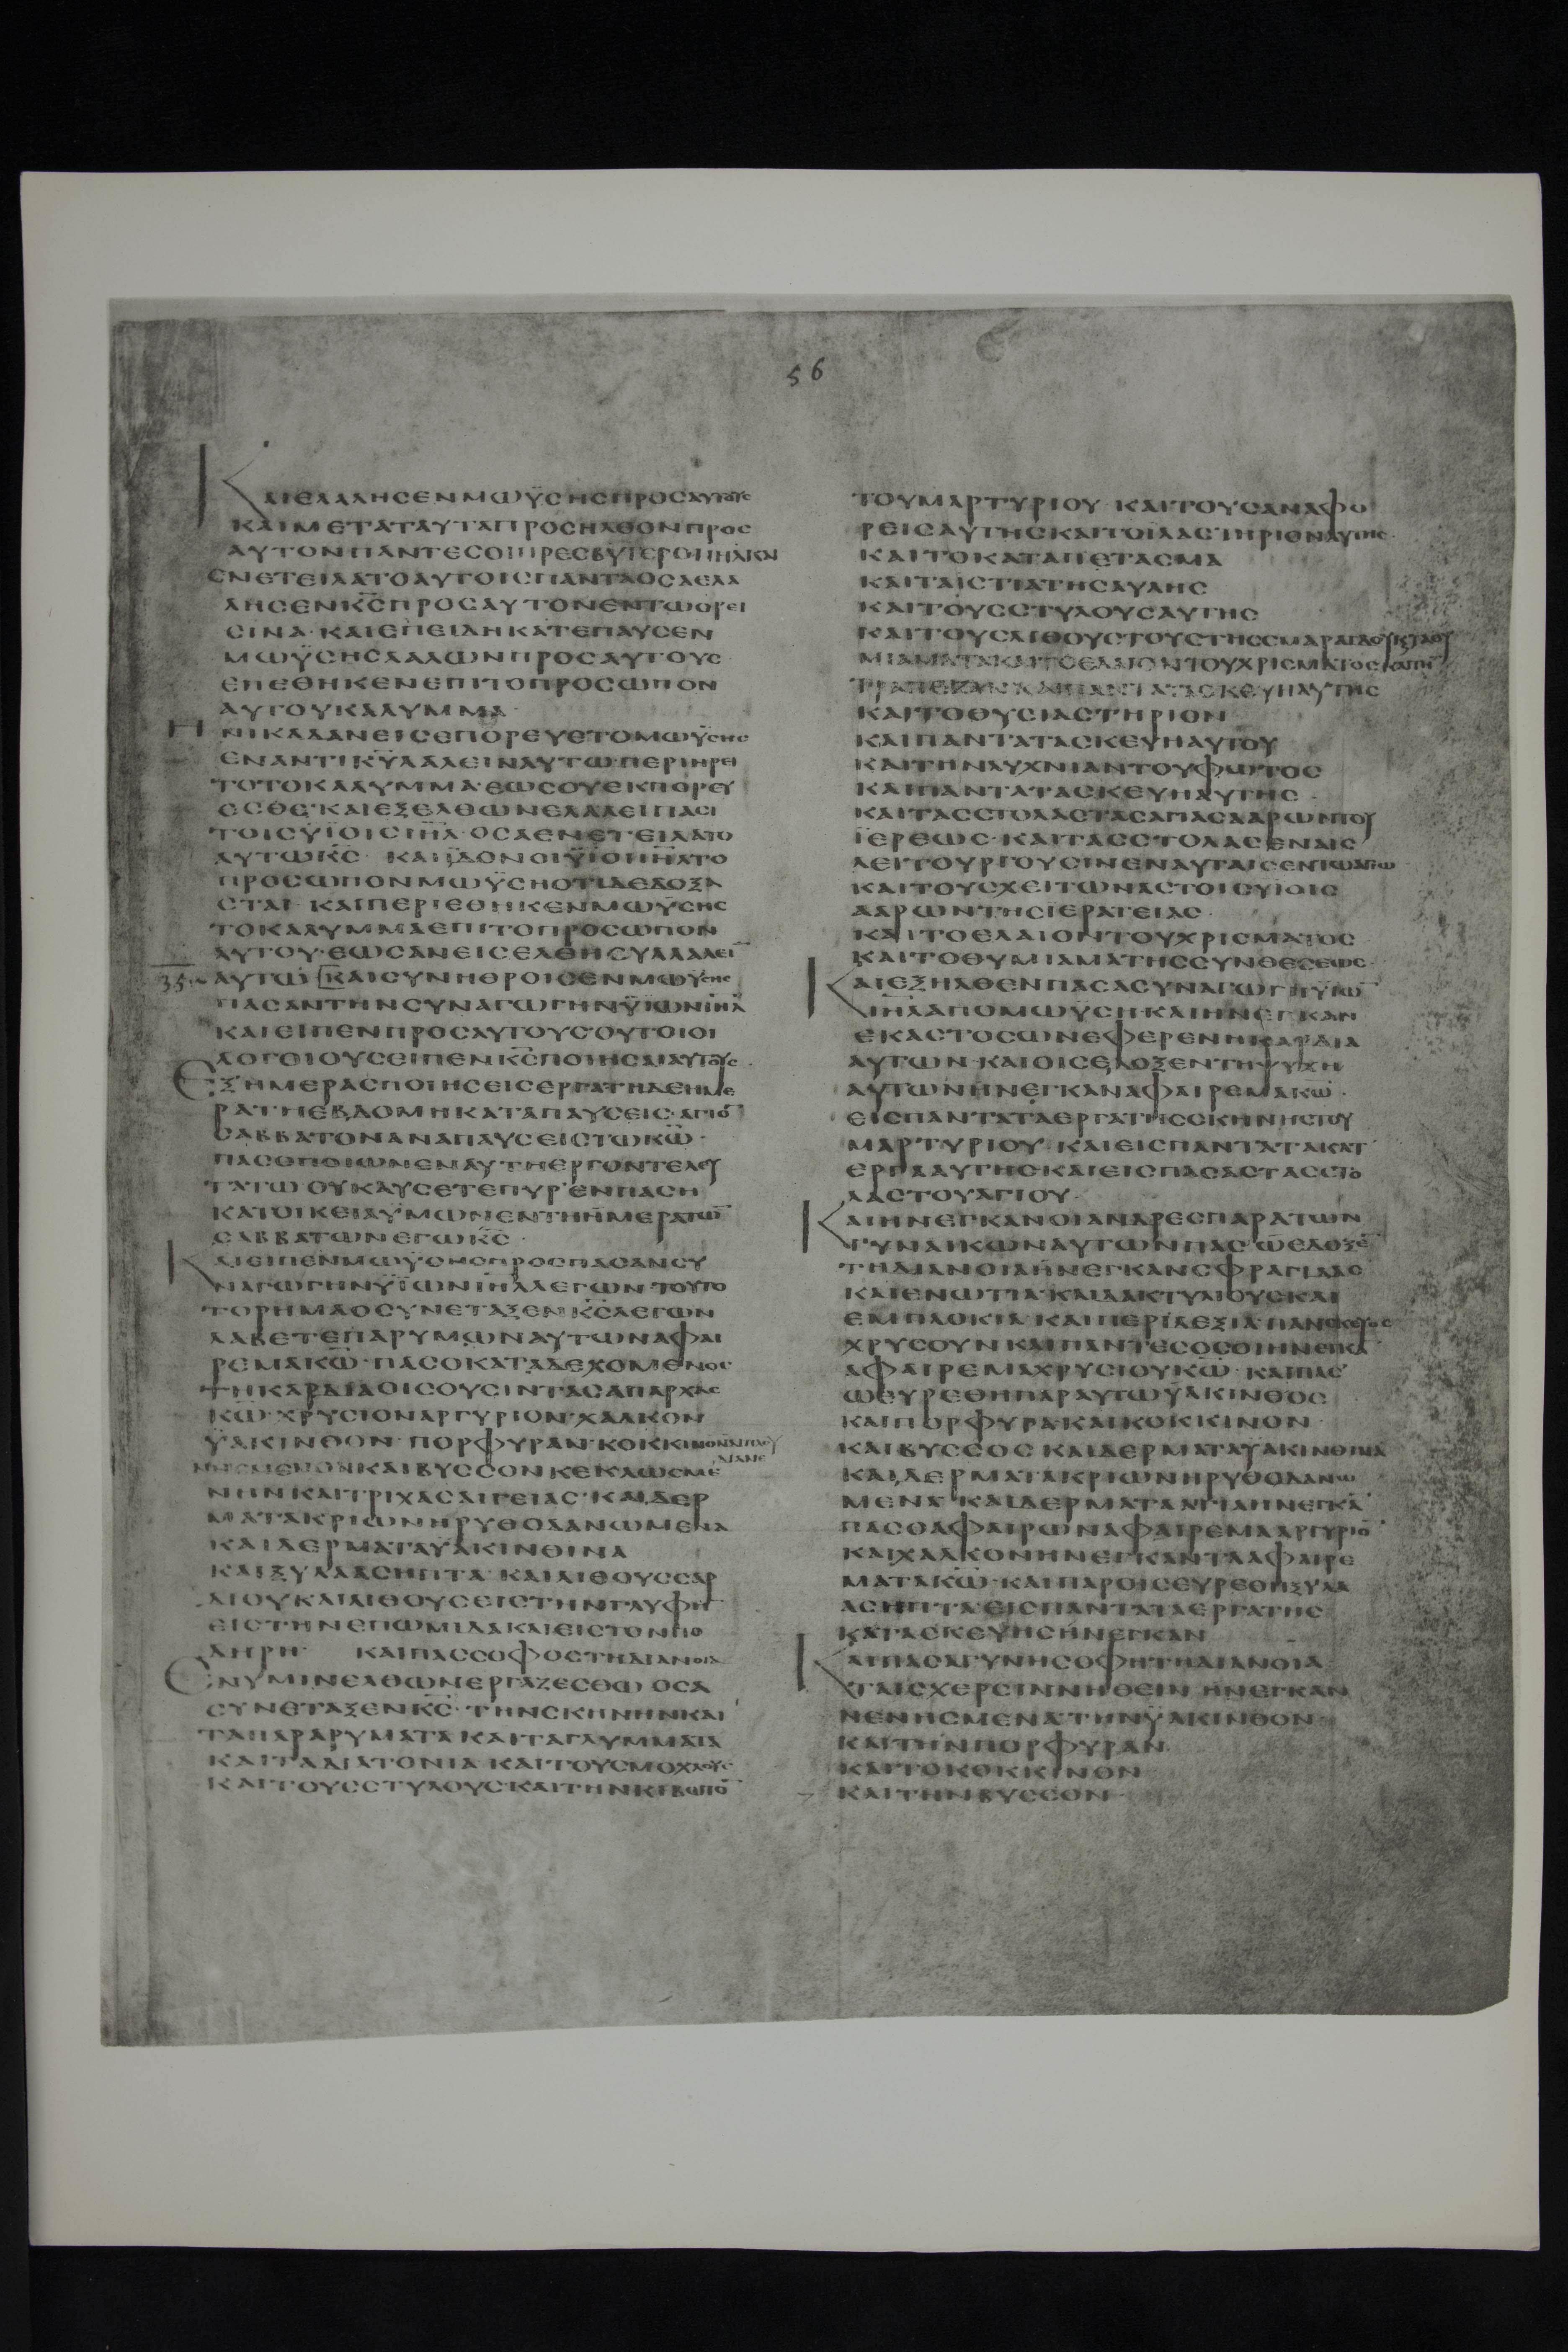 56
ΚΑΙΕΛΑΛΗΣΕΝΜΩΫΣΗΣΠΡΟΣΑΥΤΟΥΣ
ΚΑΙΜΕΤΑΤΑΥΤΑΠΡΟΣΗΛΘΟΝΠΡΟΣ
ΑΥΤΟΝΠΑΝΤΕΣΟΙΠΡΕΣΒΥΤΕΡΟΙΙΗΛΚΑΙ
ΕΝΕΤΕΙΛΑΤΟΑΥΤΟΙΣΠΑΝΤΑΟΣΑΕΛΑ
ΛΗΣΕΝΚΣΠΡΟΣΑΥΤΟΝΕΝΤΩΟΡΕΙ
ΣΙΝΑ·ΚΑΙΕΠΕΙΔΗΚΑΤΕΠΑΥΣΕΝ
ΜΩΫΣΗΣΛΑΛΩΝΠΡΟΣΑΥΤΟΥΣ
ΕΠΕΘΗΚΕΝΕΠΙΤΟΠΡΟΣΩΠΟΝ
ΑΥΤΟΥΚΑΛΥΜΜΑ·
ΗΝΙΚΑΔΑΝΕΙΣΕΠΟΡΕΥΕΤΟΜΩΫΣΗΣ
ΕΝΑΝΤΙΚΥΛΑΛΕΙΝΑΥΤΩΠΕΡΙΗΡΕΙ
ΤΟΤΟΚΑΛΥΜΜΑ·ΕΩΣΟΥΕΚΠΟΡΕΥ
ΕΣΘΕ·ΚΑΙΕΞΕΛΘΩΝΕΛΑΛΕΙΠΑΣΙ
ΤΟΙΣΥΪΟΙΣΙΗΛ·ΟΣΑΕΝΕΤΕΙΛΑΤΟ
ΑΥΤΩΚΣ· ΚΑΙΪΔΟΝΟΙΫΙΟΙΙΗΛΤΟ
ΠΡΟΣΩΠΟΝΜΩΫΣΗΟΤΙΔΕΔΟΞΑ
ΣΤΑΙ· ΚΑΙΠΕΡΙΕΘΗΚΕΝΜΩΫΣΗΣ
ΤΟΚΑΛΥΜΜΑΕΠΙΤΟΠΡΟΣΩΠΟΝ
ΑΥΤΟΥ·ΕΩΣΑΝΕΙΣΕΛΘΗΣΥΛΛΑΛΕΙ
35 ΑΥΤΩΙ [ΚΑΙΣΥΝΗΘΡΟΙΣΕΝΜΩΫΣΗΣ
ΠΑΣΑΝΤΗΝΣΥΝΑΓΩΓΗΝΫΙΩΝΙΗΛ
ΚΑΙΕΙΠΕΝΠΡΟΣΑΥΤΟΥΣΟΥΤΟΙΟΙ
ΛΟΓΟΙΟΥΣΕΙΠΕΝΚΣΠΟΙΗΣΑΙΑΥΤΟΥΣ
ΕΞΗΜΕΡΑΣΠΟΙΗΣΕΙΣΕΡΓΑΤΗΔΕΗΜΕ
ΡΑΤΗΕΒΔΟΜΗΚΑΤΑΠΑΥΣΕΙΣ·ΑΓΙΟ
ΣΑΒΒΑΤΟΝΑΝΑΠΑΥΣΕΙΣΤΩΚΩ·
ΠΑΣΟΠΟΙΩΝΕΝΑΥΤΗΕΡΓΟΝΤΕΛΕΥ
ΤΑΤΩ ΟΥΚΑΥΣΕΤΕΠΥΡΕΝΠΑΣΗ
ΚΑΤΟΙΚΕΙΑΫΜΩΝΕΝΤΗΗΜΕΡΑΤΩ
ΣΑΒΒΑΤΩΝΕΓΩΚΣ·
ΚΑΙΕΙΠΕΝΜΩΫΣΗΣΠΡΟΣΠΑΣΑΝΣΥ
ΝΑΓΩΓΗΝΫΪΩΝΙΗΛΛΕΓΩΝ·ΤΟΥΤΟ
ΤΟΡΗΜΑΟΣΥΝΕΤΑΞΕΝΚΣΛΕΓΩΝ
ΛΑΒΕΤΕΠΑΡΥΜΩΝΑΥΤΩΝΑΦΑΙ
ΡΕΜΑΚΩ·ΠΑΣΟΚΑΤΑΔΕΧΟΜΕΝΟΣ
ΤΗΚΑΡΔΙΑΟΙΣΟΥΣΙΝΤΑΣΑΠΑΡΧΑΣ
ΚΩ·ΧΡΥΣΙΟΝΑΡΓΥΡΙΟΝ·ΧΑΛΚΟΝ
ΫΑΚΙΝΘΟΝ·ΠΟΡΦΥΡΑΝ·ΚΟΚΚΙΝΟΝΔΙΠΛΟΥ
ΔΙΑΝΕ
ΝΗΣΜΕΝΟΝΚΑΙΒΥΣΣΟΝΚΕΚΛΩΣΜΕ
ΝΗΝΚΑΙΤΡΙΧΑΣΑΙΓΕΙΑΣ·ΚΑΙΔΕΡ
ΜΑΤΑΚΡΙΩΝΗΡΥΘΟΔΑΝΩΜΕΝΑ
ΚΑΙΔΕΡΜΑΤΑΥΑΚΙΝΘΙΝΑ
ΚΑΙΞΥΛΑΑΣΗΠΤΑ·ΚΑΙΛΙΘΟΥΣΣΑΡ
ΔΙΟΥΚΑΙΛΙΘΟΥΣΕΙΣΤΗΝΓΛΥΦΗ
ΕΙΣΤΗΝΕΠΩΜΙΔΑΚΑΙΕΙΣΤΟΝΠΟ
ΔΗΡΗ· ΚΑΙΠΑΣΣΟΦΟΣΤΗΔΙΑΝΟΙΑ
ΕΝΥΜΙΝΕΛΘΩΝΕΡΓΑΖΕΣΘΩ ΟΣΑ
ΣΥΝΕΤΑΞΕΝΚΣ·ΤΗΝΣΚΗΝΗΝΚΑΙ
ΤΑΠΑΡΑΡΥΜΑΤΑΚΑΙΤΑΓΛΥΜΜΑΤΑ
ΚΑΙΤΑΔΙΑΤΟΝΙΑ·ΚΑΙΤΟΥΣΜΟΧΛΟΥΣ
ΚΑΙΤΟΥΣΣΤΥΛΟΥΣ·ΚΑΙΤΗΝΚΙΒΩΤΟ
ΤΟΥΜΑΡΤΥΡΙΟΥ·ΚΑΙΤΟΥΣΑΝΑΦΟ
ΡΕΙΣΑΥΤΗΣΚΑΙΤΟΙΛΑΣΤΗΡΙΟΝΑΥΤΗΣ·
ΚΑΙΤΟΚΑΤΑΠΕΤΑΣΜΑ
ΚΑΙΤΑΙΣΤΙΑΤΗΣΑΥΛΗΣ
ΚΑΙΤΟΥΣΣΤΥΛΟΥΣΑΥΤΗΣ
ΚΑΙΤΟΥΣΛΙΘΟΥΣΤΟΥΣΤΗΣΣΜΑΡΑΓΔΟΥΚ
ΜΙΑΜΑΤΑΚΑΙΤΟΕΛΑΙΟΝΤΟΥΧΡΙΣΜΑΤΟΣΚΑΙΤΗ
ΤΡΑΠΕΖΑΝΚΑΙΠΑΝΤΑΤΑΣΚΕΥΗΑΥΤΗΣ
ΚΑΙΤΟΘΥΣΙΑΣΤΗΡΙΟΝ
ΚΑΙΠΑΝΤΑΤΑΣΚΕΥΗΑΥΤΟΥ
ΚΑΙΤΗΝΛΥΧΝΙΑΝΤΟΥΦΩΤΟΣ
ΚΑΙΠΑΝΤΑΤΑΣΚΕΥΗΑΥΤΗΣ·
ΚΑΙΤΑΣΣΤΟΛΑΣΤΑΣΑΓΙΑΣΑΑΡΩΝΤΟΥ
ΪΕΡΕΩΣ·ΚΑΙΤΑΣΣΤΟΛΑΣΕΝΑΙΣ
ΛΕΙΤΟΥΡΓΟΥΣΙΝΕΝΑΥΤΑΙΣΕΝΤΩΑΓΙΩ
ΚΑΙΤΟΥΣΧΕΙΤΩΝΑΣΤΟΙΣΥΪΟΙΣ
ΑΑΡΩΝΤΗΣΪΕΡΑΤΕΙΑΣ·
ΚΑΙΤΟΕΛΑΙΟΝΤΟΥΧΡΙΣΜΑΤΟΣ
ΚΑΙΤΟΘΥΜΙΑΜΑΤΗΣΣΥΝΘΕΣΕΩΣ·
ΚΑΙΕΞΗΛΘΕΝΠΑΣΑΣΥΝΑΓΩΓΗΫΙΩ
ΙΗΛΑΠΟΜΩΫΣΗ·ΚΑΙΗΝΕΓΚΑΝ
ΕΚΑΣΤΟΣΩΝΕΦΕΡΕΝΗΚΑΡΔΙΑ
ΑΥΤΩΝ·ΚΑΙΟΙΣΕΔΟΞΕΝΤΗΨΥΧΗ
ΑΥΤΩΝΗΝΕΓΚΑΝΑΦΑΙΡΕΜΑΚΩ·
ΕΙΣΠΑΝΤΑΤΑΕΡΓΑΤΗΣΣΚΗΝΗΣΤΟΥ
ΜΑΡΤΥΡΙΟΥ·ΚΑΙΕΙΣΠΑΝΤΑΤΑΚΑΤ
ΕΡΓΑΑΥΤΗΣ·ΚΑΙΕΙΣΠΑΣΑΣΤΑΣΣΤΟ
ΛΑΣΤΟΥΑΓΙΟΥ·
ΚΑΙΗΝΕΓΚΑΝΟΙΑΝΔΡΕΣΠΑΡΑΤΩΝ
ΓΥΝΑΙΚΩΝΑΥΤΩΝΠΑΣΩΕΔΟΞΕ
ΤΗΔΙΑΝΟΙΑΗΝΕΓΚΑΝΣΦΡΑΓΙΔΑΣ
ΚΑΙΕΝΩΤΙΑ·ΚΑΙΔΑΚΤΥΛΙΟΥΣΚΑΙ
ΕΜΠΛΟΚΙΑ·ΚΑΙΠΕΡΙΔΕΞΙΑ·ΠΑΝΣΚΕΥΟΣ
ΧΡΥΣΟΥΝΚΑΙΠΑΝΤΕΣΟΣΟΙΗΝΕΓΚΑ
ΑΦΑΙΡΕΜΑΧΡΥΣΙΟΥΚΩ·ΚΑΙΠΑΣ
ΩΕΥΡΕΘΗΠΑΡΑΥΤΩΫΑΚΙΝΘΟΣ
ΚΑΙΠΟΡΦΥΡΑ·ΚΑΙΚΟΚΚΙΝΟΝ·
ΚΑΙΒΥΣΣΟΣ·ΚΑΙΔΕΡΜΑΤΑΫΑΚΙΝΘΙΝΑ
ΚΑΙΔΕΡΜΑΤΑΚΡΙΩΝΗΡΥΘΟΔΑΝΩ
ΜΕΝΑ·ΚΑΙΔΕΡΜΑΤΑΑΙΓΙΑΗΝΕΓΚΑ
ΠΑΣΟΑΦΑΙΡΩΝΑΦΑΙΡΕΜΑΑΡΓΥΡΙΟ
ΚΑΙΧΑΛΚΟΝΗΝΕΓΚΑΝΤΑΑΦΑΙΡΕ
ΜΑΤΑΚΩ·ΚΑΙΠΑΡΟΙΣΕΥΡΕΘΗΞΥΛΑ
ΑΣΗΠΤΑΕΙΣΠΑΝΤΑΤΑΕΡΓΑΤΗΣ
ΚΑΤΑΣΚΕΥΗΣΗΝΕΓΚΑΝ
ΚΑΙΠΑΣΑΓΥΝΗΣΟΦΗΤΗΔΙΑΝΟΙΑ·
ΤΑΙΣΧΕΡΣΙΝΝΗΘΕΙΝ ΗΝΕΓΚΑΝ
ΝΕΝΗΣΜΕΝΑ·ΤΗΝΫΑΚΙΝΘΟΝ
ΚΑΙΤΗΝΠΟΡΦΥΡΑΝ
ΚΑΙΤΟΚΟΚΚΙΝΟΝ
ΚΑΙΤΗΝΒΥΣΣΟΝ·